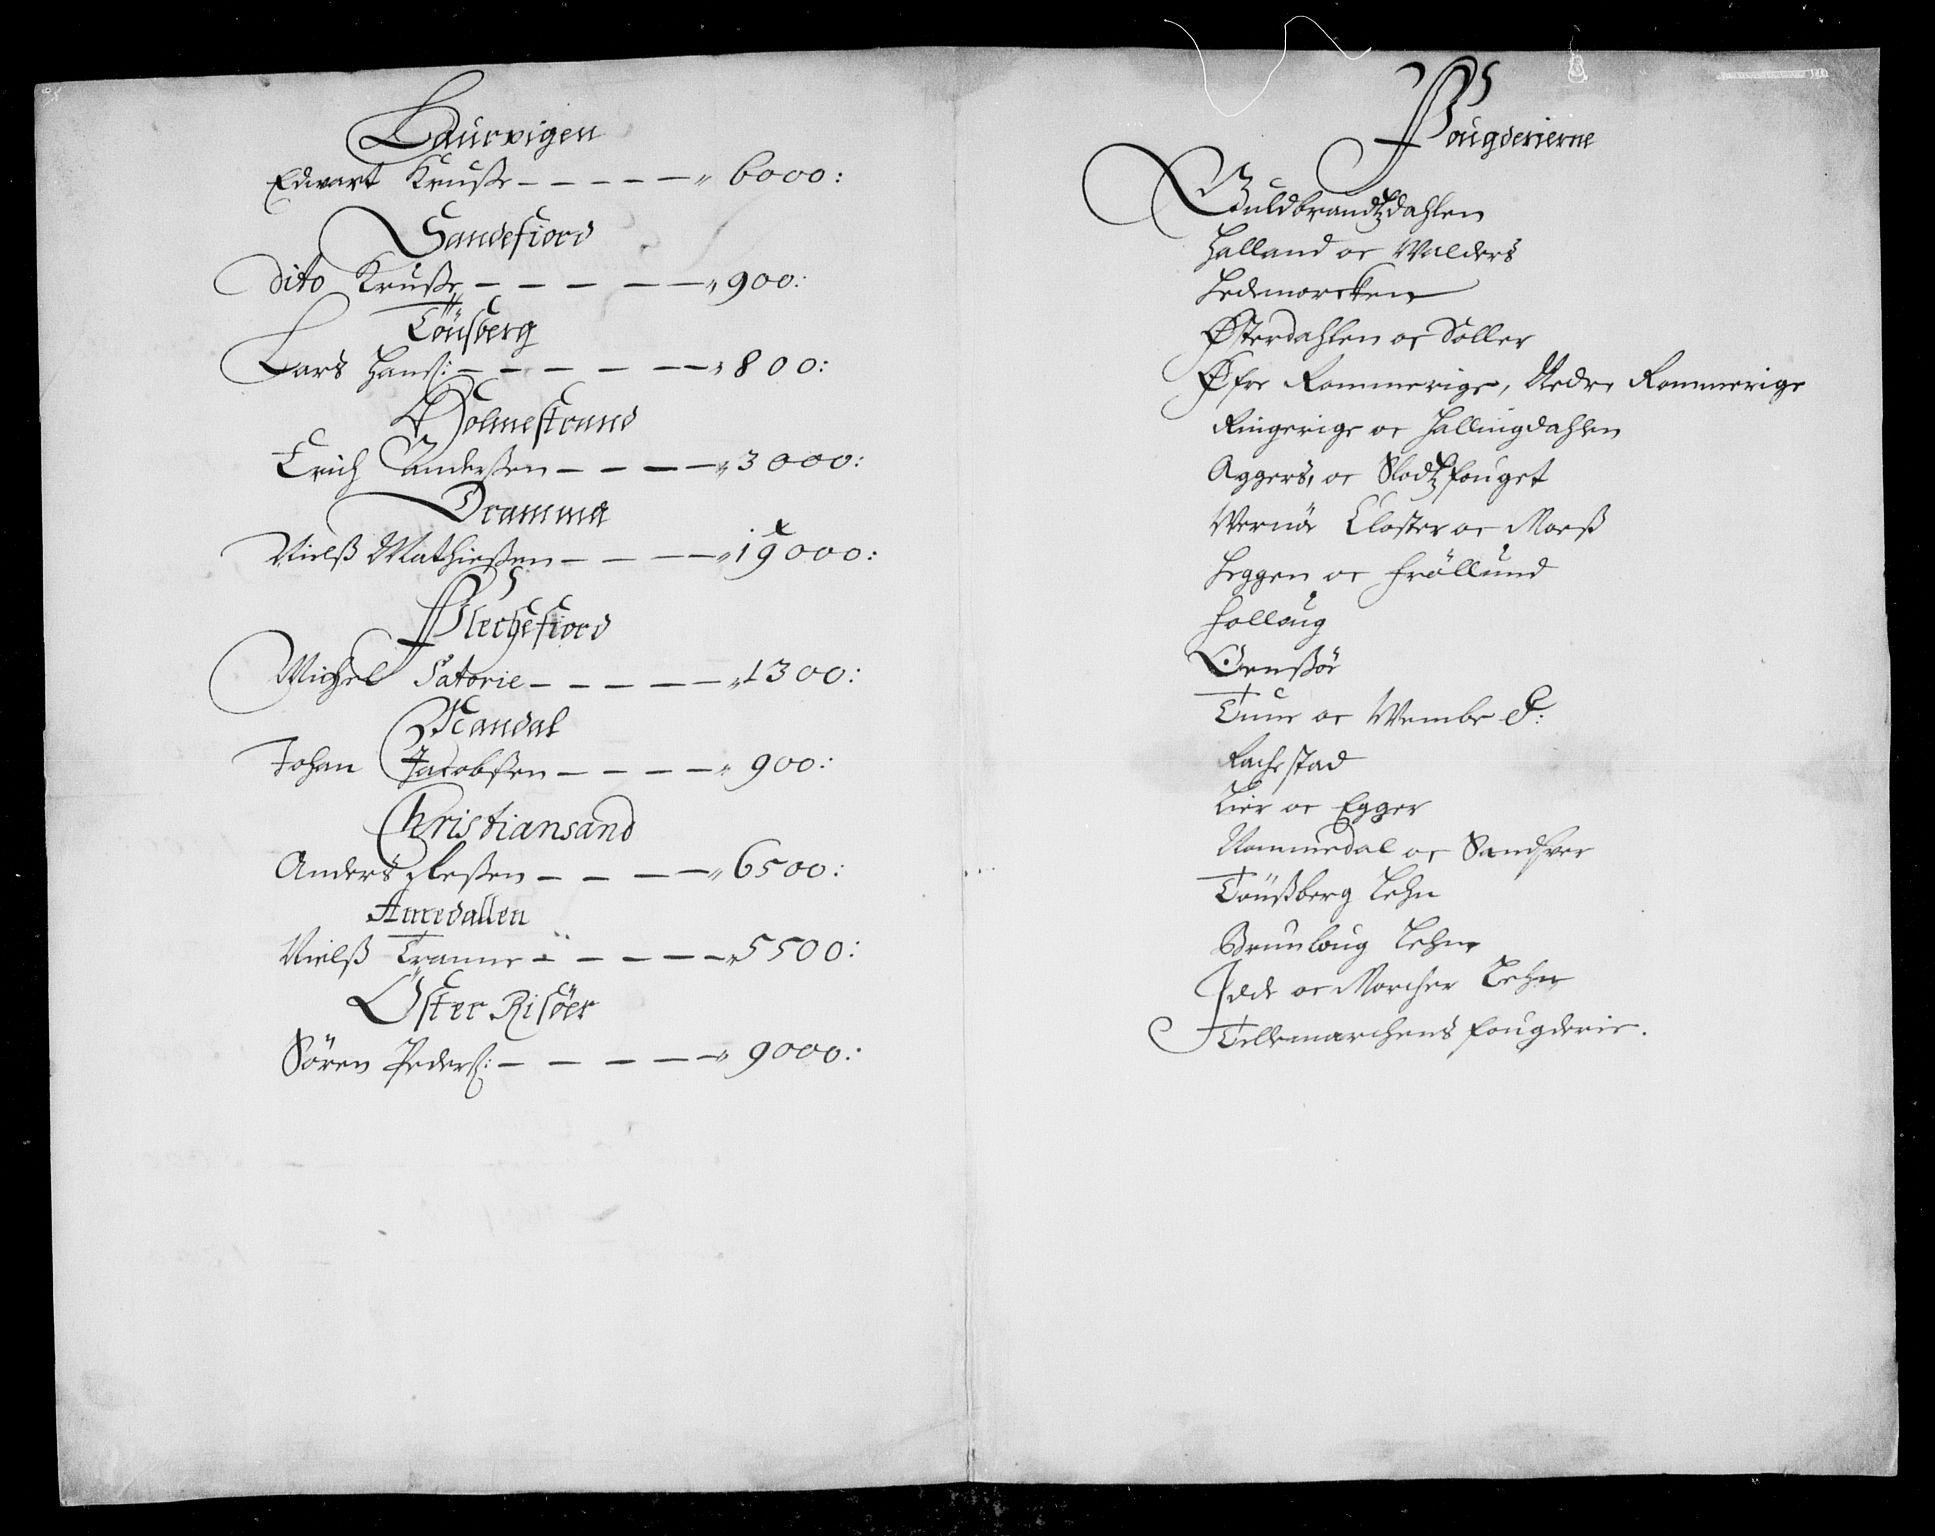 Laurvigen
Edvart Kruße - - - - - " 6000:
Sandefiord
Dito Kruße - - - - - " 900:
Tönsberg
Lars Hanß: - - - - - " 800:
Holmestrand
Erich Anderßen - - - - " 3000:
Dramma
Nielß Mathießen - - - - " 19000:
Flechefiord
Michel Satorie - - - - - " 1300:
Mandal
Johan Jacobßen - - - - " 900:
Christiansand
Anders Ileßen - - - - " 6500:
Arredallen
Nielß Tranne - - - - - " 5500:
Öster Risöer
Sören Pederß: - - - - - " 9000:
Fougderierne
Guldbrandtzdahlen
Halland oc Walders
Hedemarcken
Østerdahlen oc Soller
Øfre Rommerige, Nedre Rommerige
Ringerige oc Hallingdahlen
Aggers, oc Slodtzfouget
Wernöe Closter oc Moeß
Heggen oc Fröllund
Folloug
Oenßöe
Tune oc Wembe S:
Rachestad
Lier oc Egger
Nommedal oc Sandsver
Tönßberg Lehn
Brunloug Lehn
Idde oc Marcher Lehn
Tellemarchens fougderie.